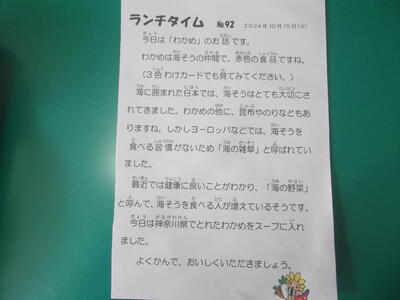 ランチタイム №92 2024年10月15日(火)
今日は「わかめ」のお話です。
わかめは海そうの仲間で、赤色の食品ですね。
(3色わけカードでも見てみてください。)
海に囲まれた日本では、海そうはとても大切に
されてきました。わかめの他に、昆布やのりなどもあ
りますね。しかしヨーロッパなどでは、海そうを
食べる習慣がないため「海の雑草」と呼ばれてい
ました。
最近では健康に良いことがわかり、「海の野菜」
と呼んで、海そうを食べる人が増えているそうです。
今日は神奈川県でとれたわかめをスープに入れ
ました。
よくかんで、おいしくいただきましょう。